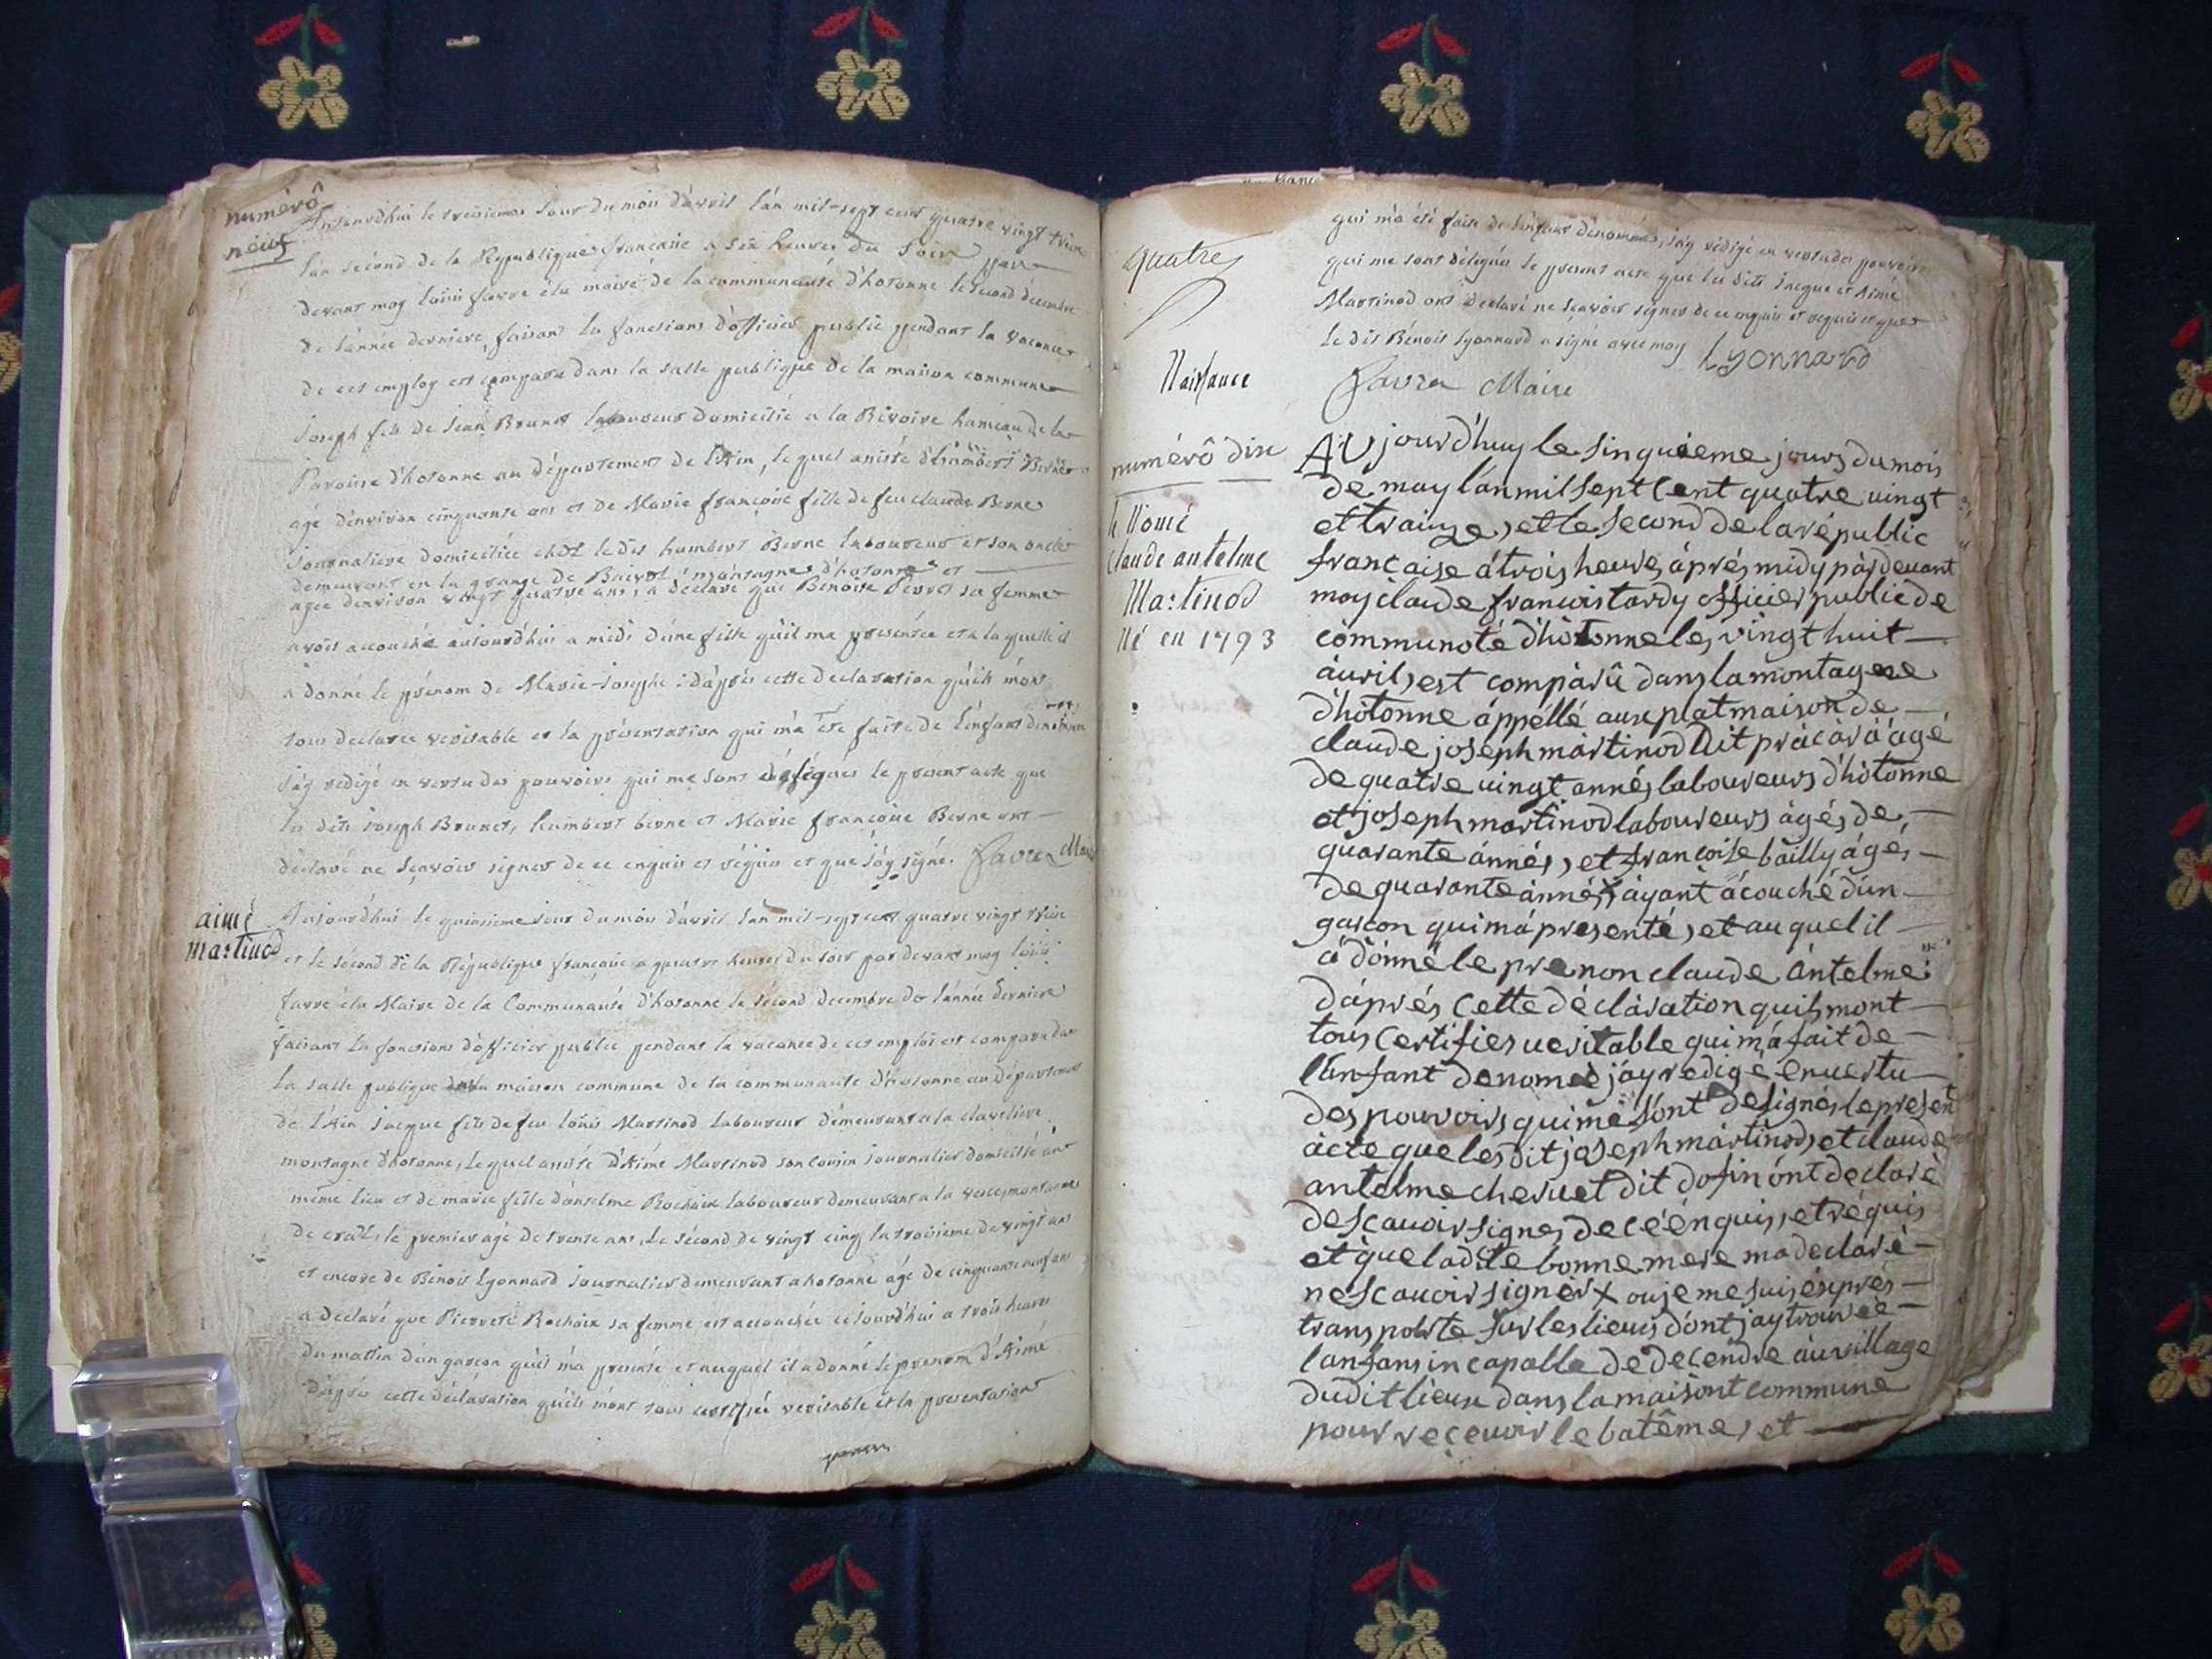 numérô
neuf
Aujourd'hui le treisieme Jour du mois d'avril l'an mil-sept cent quatre vingt treize
l'an sécond de la République française a six heures du soir par
devant moy louis favre élu maire de la communauté d'hotonne le second décembre
de l'année derniere, faisant les fonctions d'officier public pendant la vacance
de cet employ est comparu dans la salle publique de la maison commune
Joseph fils de Jean Brunet laboureur domicilié a la Rivoire hameau de la
Paroisse d'hotonne au département de l'Ain, le quel assisté d'humbert Berne
agé d'environ cinquante ans et de Marie françoise fille de feu claude Berne
Journaliere domiciliée chez le dit humbert Berne laboureur et son oncle
demeurant en la grange de montagne d'hotonne et
agée d'environ vingt quatre ans, a déclaré que Benoite Perret sa femme
avoit accouché aujourd'hui a midi d'une fille qu'il ma presentée et a la quelle il
a donné le prénom de Marie-Josephe : d'après cette declaration qu'ils m'ont
tous declarée veritable et la présentation qui m'a été faite de l'énfant denommée
j'ay redigé en vertu des pouvoirs qui me sont délégués le présent acte que
les dits Joseph Brunet, humbert berne et Marie françoise Berne ont
déclaré ne sçavoir signer de ce enquis et réquis et que j'ay signé. Favre Maire
aimé
martinod
Aujourd'hui le quinsieme jour du mois d'avril l'an mil-sept cent quatre vingt treise
et le sécond de la République française a quatre heures du soir par devant moy louis
favre élu Maire de la Communauté d'hotonne le sécond decembre de l'année derniere
faisant les fonctions d'officier public pendant la vacance de cet emploi est comparu dans
la salle publique de la maison commune de la communauté d'hotonne au département
de l'Ain Jacque fils de feu louis Martinod laboureur démeurant a la claveliere
montagne d'hotonne, le quel assisté d'Aimé Martinod son cousin journalier domicilié au
même lieu et de marie fille d'anselme Rochaix laboureur demeurant a la montagne
de le premier agé de trente ans, le sécond de vingt cinq la troisieme de vingt ans
et encore de Bénoit Lyonnard journalier demeurant a hotonne agé de cinquante neuf ans
a declaré que Pierrete Rochaix sa femme est accouchée cejourd'hui a trois heures
du matin d'un garçon qu'il m'a presenté et auquel il a donné le prenom d'Aimé
D'après cette déclaration qu'ils m'ont tous certifié veritable et la presentation
quatre
qui m'a été faite de l'énfant dénommé, j'ay rédigé en vertu des pouvoirs
qui me sont délégués le present acte que les dits Jacque et Aimé
Martinod ont déclaré ne sçavoir signer de ce enquis et requis et que
le dit Bénoit Lyonnard a signé avec moy Lyonnard
Favre Maire
Naissance
numérô dix
le Nomé
Claude antelme
Martinod
Né en 1793
AUjourd'huy le sinquieme jours du mois
de may l'an mil sept cent quatre vingt
et traize, et le second de la république
francaise á trois heures áprés midy pàr devant
moy claude francois tardy officier public de
communoté d'hotonne les vingt huit
ávril, est compàrû dans la montagne
d'hôtonne áppéllé aux plat maison de
claude joseph mártinod Dit pràcàrà ágé
de quatre vingt annés laboureurs d'hôtonne
et joseph martinod laboureurs ágés de
quarante ánnés, et francoise bailly ágés
de quarante ánnés áyant ácouché d'un
garcon qui má presenté, et au quel il
á donné le prenon claude ántelme
d'áprés cette déclàration quils mont
tous certifies veritable qui má fait de
l'énfant denomé j'ay redigé en vertu
des pouvoirs qui me sont designés le present
ácte que les dit joseph mártinod, et claude
antelme chervet dit dofin ónt declaré
de scavoir signes de cé énquis, et réquis
et que ladite bonne mere ma declaré
ne scavoir signér x ou je me suis éxprés
transporte sur les lieuis dont j'ay trouvée
lanfans in capalle de decendre áu village
dudit lieux dans la maisont commune
pour reçevoir le batême, et